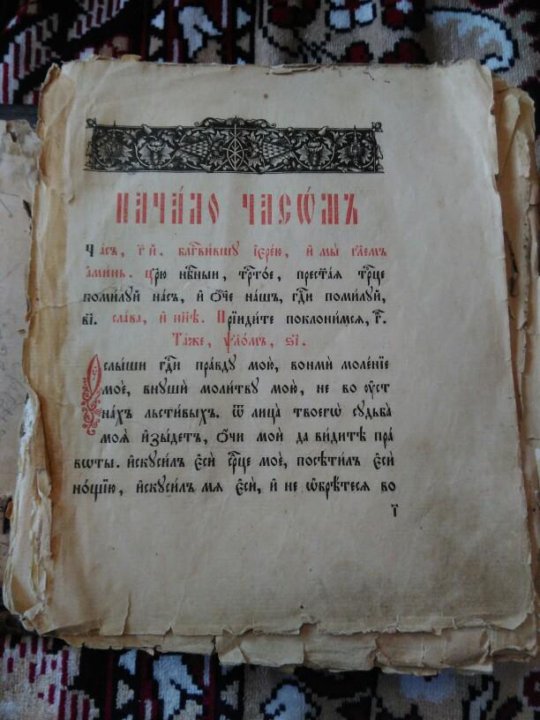 НАЧА́ЛО ЧАСѠ́МЪ
Ча́съ, г҃ й. блг҇ви́вшу і҆ере́ю, и҆ мы̀ гл҃емъ
а҆ми́нь. Цр҃ю нбⷭ҇ныи, трⷭ҇то́е, прест҃ая трⷪ҇це
поми́луй на́съ, и҆ ѻ҆́че на́шъ, гдⷭ҇и поми́луй,
в҃і. сла́ва, и҆ ны́нѣ. Прїиди́те поклони́мся, г҃.
Та́же, ѱало́мъ, ѕ҃і.
Услы́ши гдⷭ҇и пра́вду мою̀, вонмѝ моле́нїе
моѐ, внушѝ моли́тву мою̀, не во ѹ҆ст
на́хъ льсти́выхъ. ѿ лица̀ твоегѡ̀ судьба̀
моѧ̀ и҆зы́детъ, ѻ҆́чи мои̑ да ви́дитѣ пра
вѡты̀. и҆скуси́лъ є҆сѝ срⷣце моѐ, посѣти́лъ є҆сѝ
но́щїю, и҆скуси́лъ мѧ є҆сѝ, и҆ не ѡ҆брѣ́тесѧ во
і҃